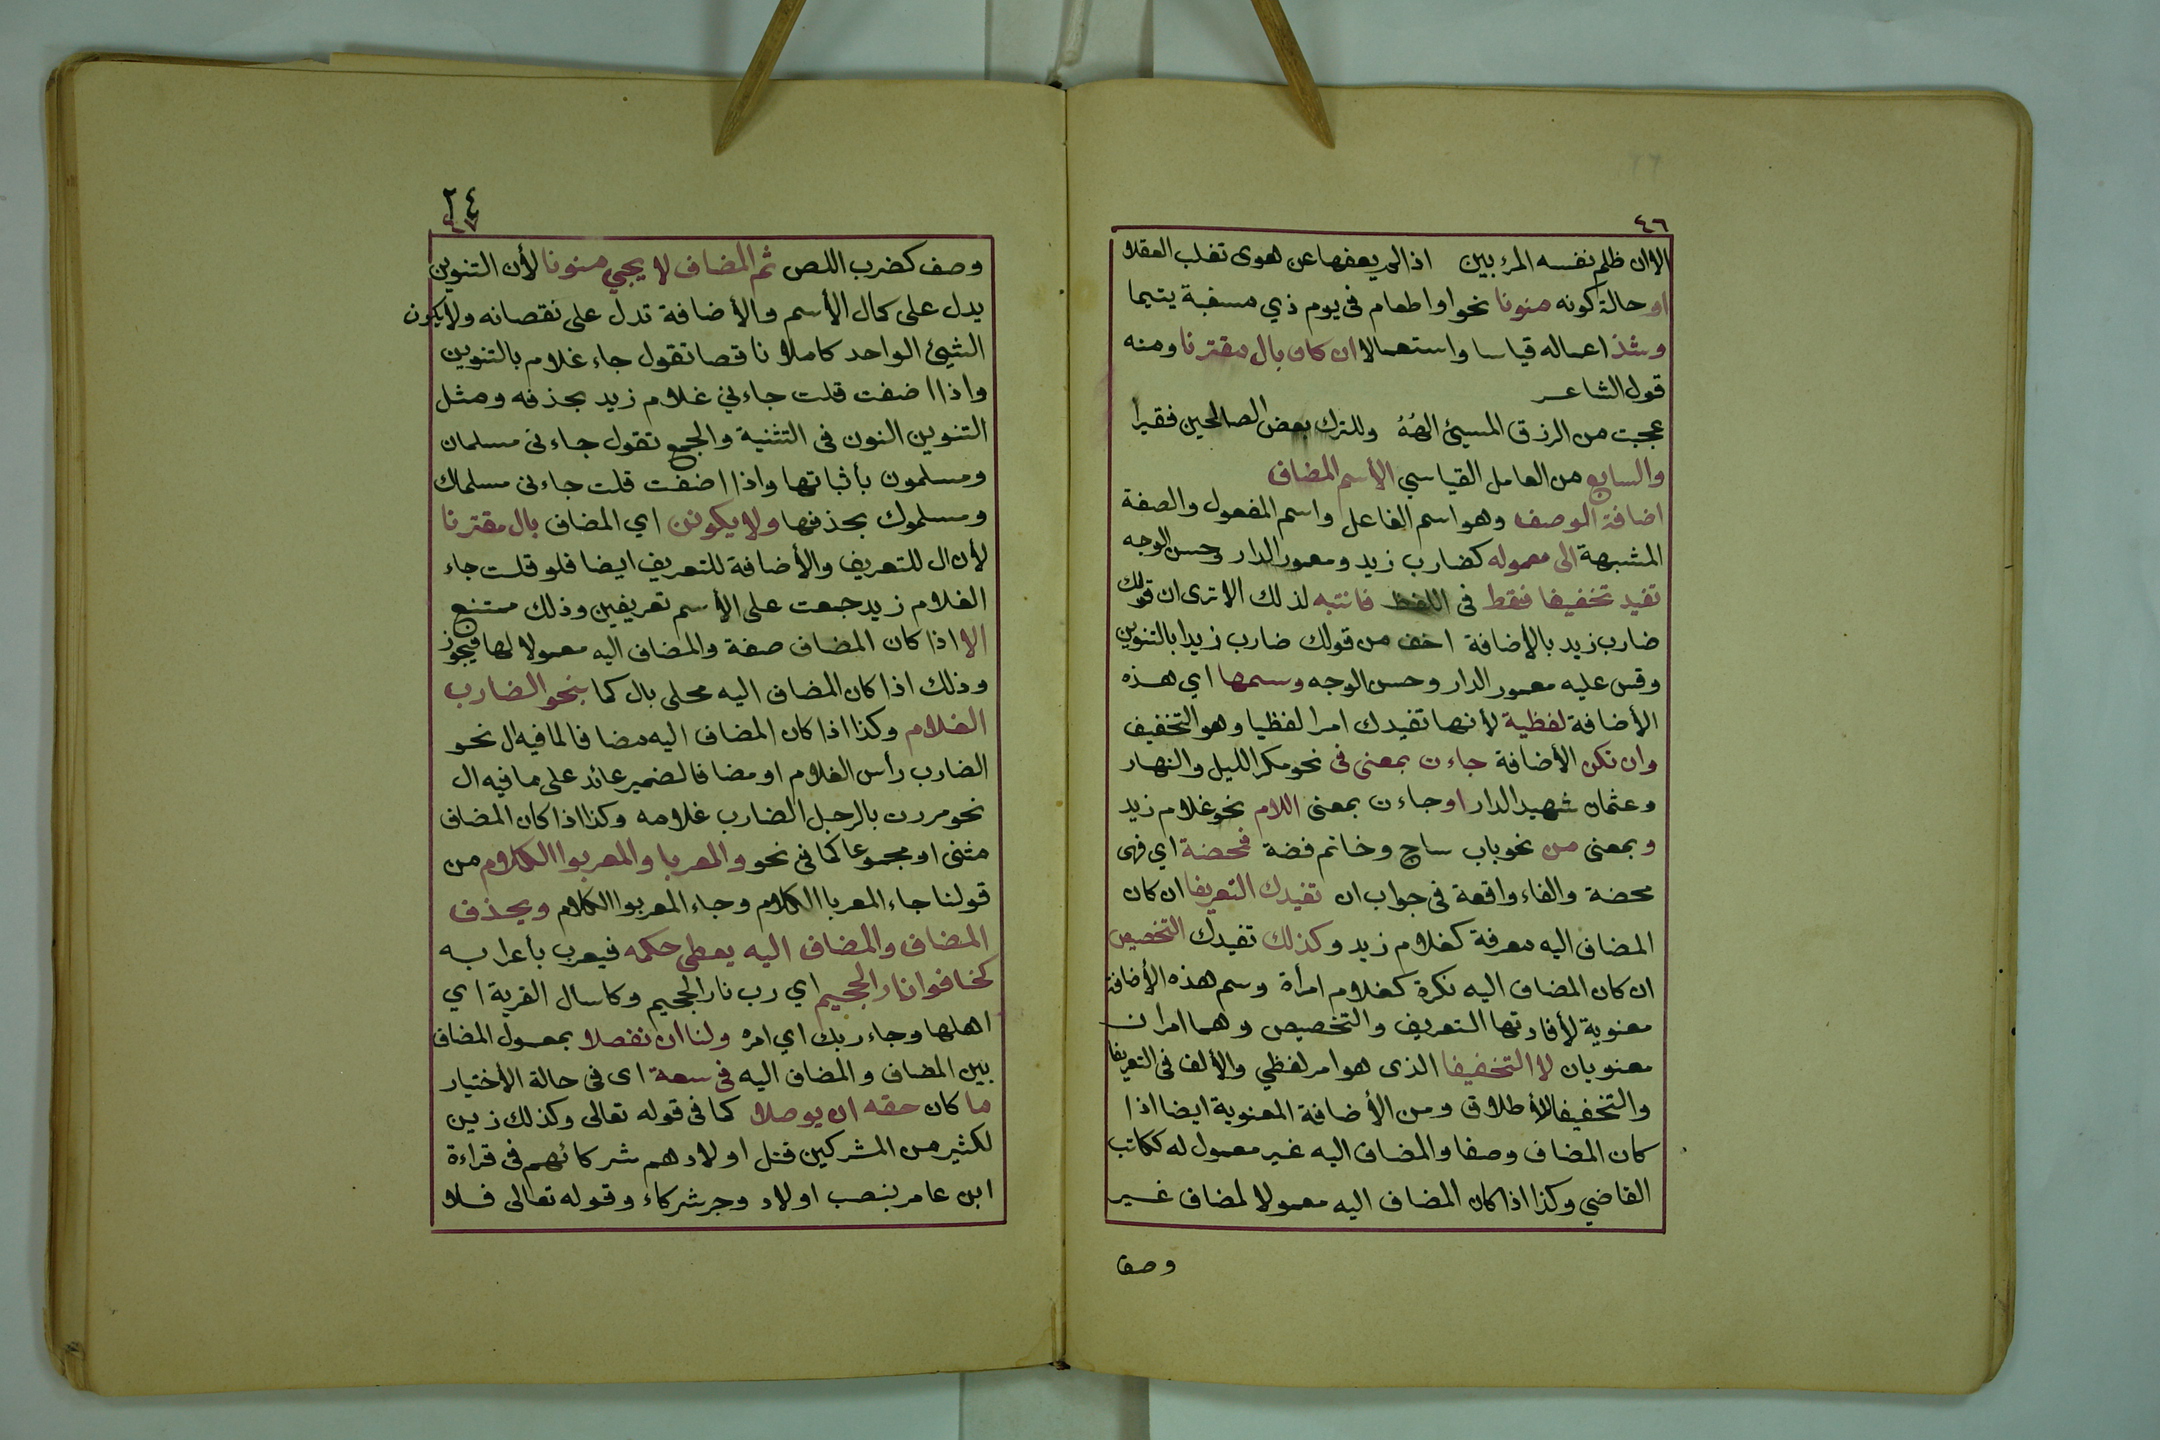 ٤٦
الا ان ظلم نفسه المرء بين اذا لم يعفها عن هوى تغلب العقلا
او حالة كونه منونا نحو او اطعام في يوم ذي مسغبة يتيما
وشذ اعماله قياسا واستعمالا ان كان بال مقترنا ومنه
قول الشاعر
عجبت من الرزق المسيئ الهُهُ وللترك بعض الصالحين فقيرا
والسابع من العامل القياسي الأسم المضاف
اضافة الوصف وهو اسم الفاعل واسم المفعول والصفة
المشبهة الى معموله كضارب زيد ومعمور الدار وحسن الوجه
تفيد تخفيفا فقط في اللفظ فانتبه لذلك الا ترى ان قولك
ضارب زيد بالإضافة اخف من قولك ضارب زيدا بالتنوين
وقس عليه معمور الدار وحسن الوجه وسمها اي هذه
الأضافة لفظية لأنها تفيدك امرا لفظيا وهو التخفيف
وان تكن الأضافة جاءت بمعنى في نحو مكر الليل والنهار
وعثمان شهيد الدار او جاءت بمعنى اللام نحو غلام زيد
وبمعنى من نحو باب ساج وخاتم فضة فمحضة اي فهى
محضة والفاء واقعة في جواب ان تفيدك التعريفا ان كان
المضاف اليه معرفة كغلام زيد وكذلك تفيدك التخصيص
ان كان المضاف اليه نكرة كغلام امرأة وسم هذه الأضافة
معنوية لأفادتها التعريف والتخصيص وهما امران
معنويان لا التخفيفا الذى هو امر لفظي والألف في التعريفا
والتخفيفا للأطلاق ومن الأضافة المعنوية ايضا اذا
كان المضاف وصفا والمضاف اليه غير معمول له ككاتب
القاضي وكذا اذا كان المضاف اليه معمولا لمضاف غير
وصف
٢٤
٤٧
وصف كضرب اللص ثم المضاف لا يجي منونا لأن التنوين
يدل على كمال الأسم والأضافة تدل على نقصانه ولا يكون
الشيئ الواحد كاملا ناقصا تقول جاء غلام بالتنوين
واذا اضفت قلت جاءني غلام زيد بحذفه ومثل
التنوين النون في التثنية والجمع تقول جاءنى مسلمان
ومسلمون بأثباتها واذا اضفت قلت جاءنى مسلماك
ومسلموك بحذفها ولا يكونن اي المضاف بال مقترنا
لأن ال للتعريف والأضافة للتعريف ايضا فلو قلت جاء
الغلام زيد جمعت على الأسم تعريفين وذلك ممتنع
الا اذا كان المضاف صفة والمضاف اليه معمولا لها فيجوز
وذلك اذا كان المضاف اليه محلى بال كما بنحو الضارب
الغلام وكذا اذا كان المضاف اليه مضافا لما فيه ال نحو
الضارب رأس الغلام او مضافا لضمير عائد على ما فيه ال
نحو مررت بالرجل الضارب غلامه وكذا اذا كان المضاف
مثنى او مجموعا كما في نحو والمعربا والمعربوا الكلام من
قولنا جاء المعربا الكلام وجاء المعربوا الكلام ويحذف
المضاف والمضاف اليه يعطى حكمه فيعرب بأعرابه
كخافوا نار الجحيم اي رب نار الجحيم وكاسال القرية اي
اهلها وجاء ربك اي امره ولنا ان نفصلا بمعمول المضاف
بين المضاف والمضاف اليه في سعة اى في حالة الأختيار
ما كان حقه ان يوصلا كما في قوله تعالى وكذلك زين
لكثير من المشركين قتل اولادهم شركائهم في قراءة
ابن عامر بنصب اولاد وجر شركاء وقوله تعالى فلا